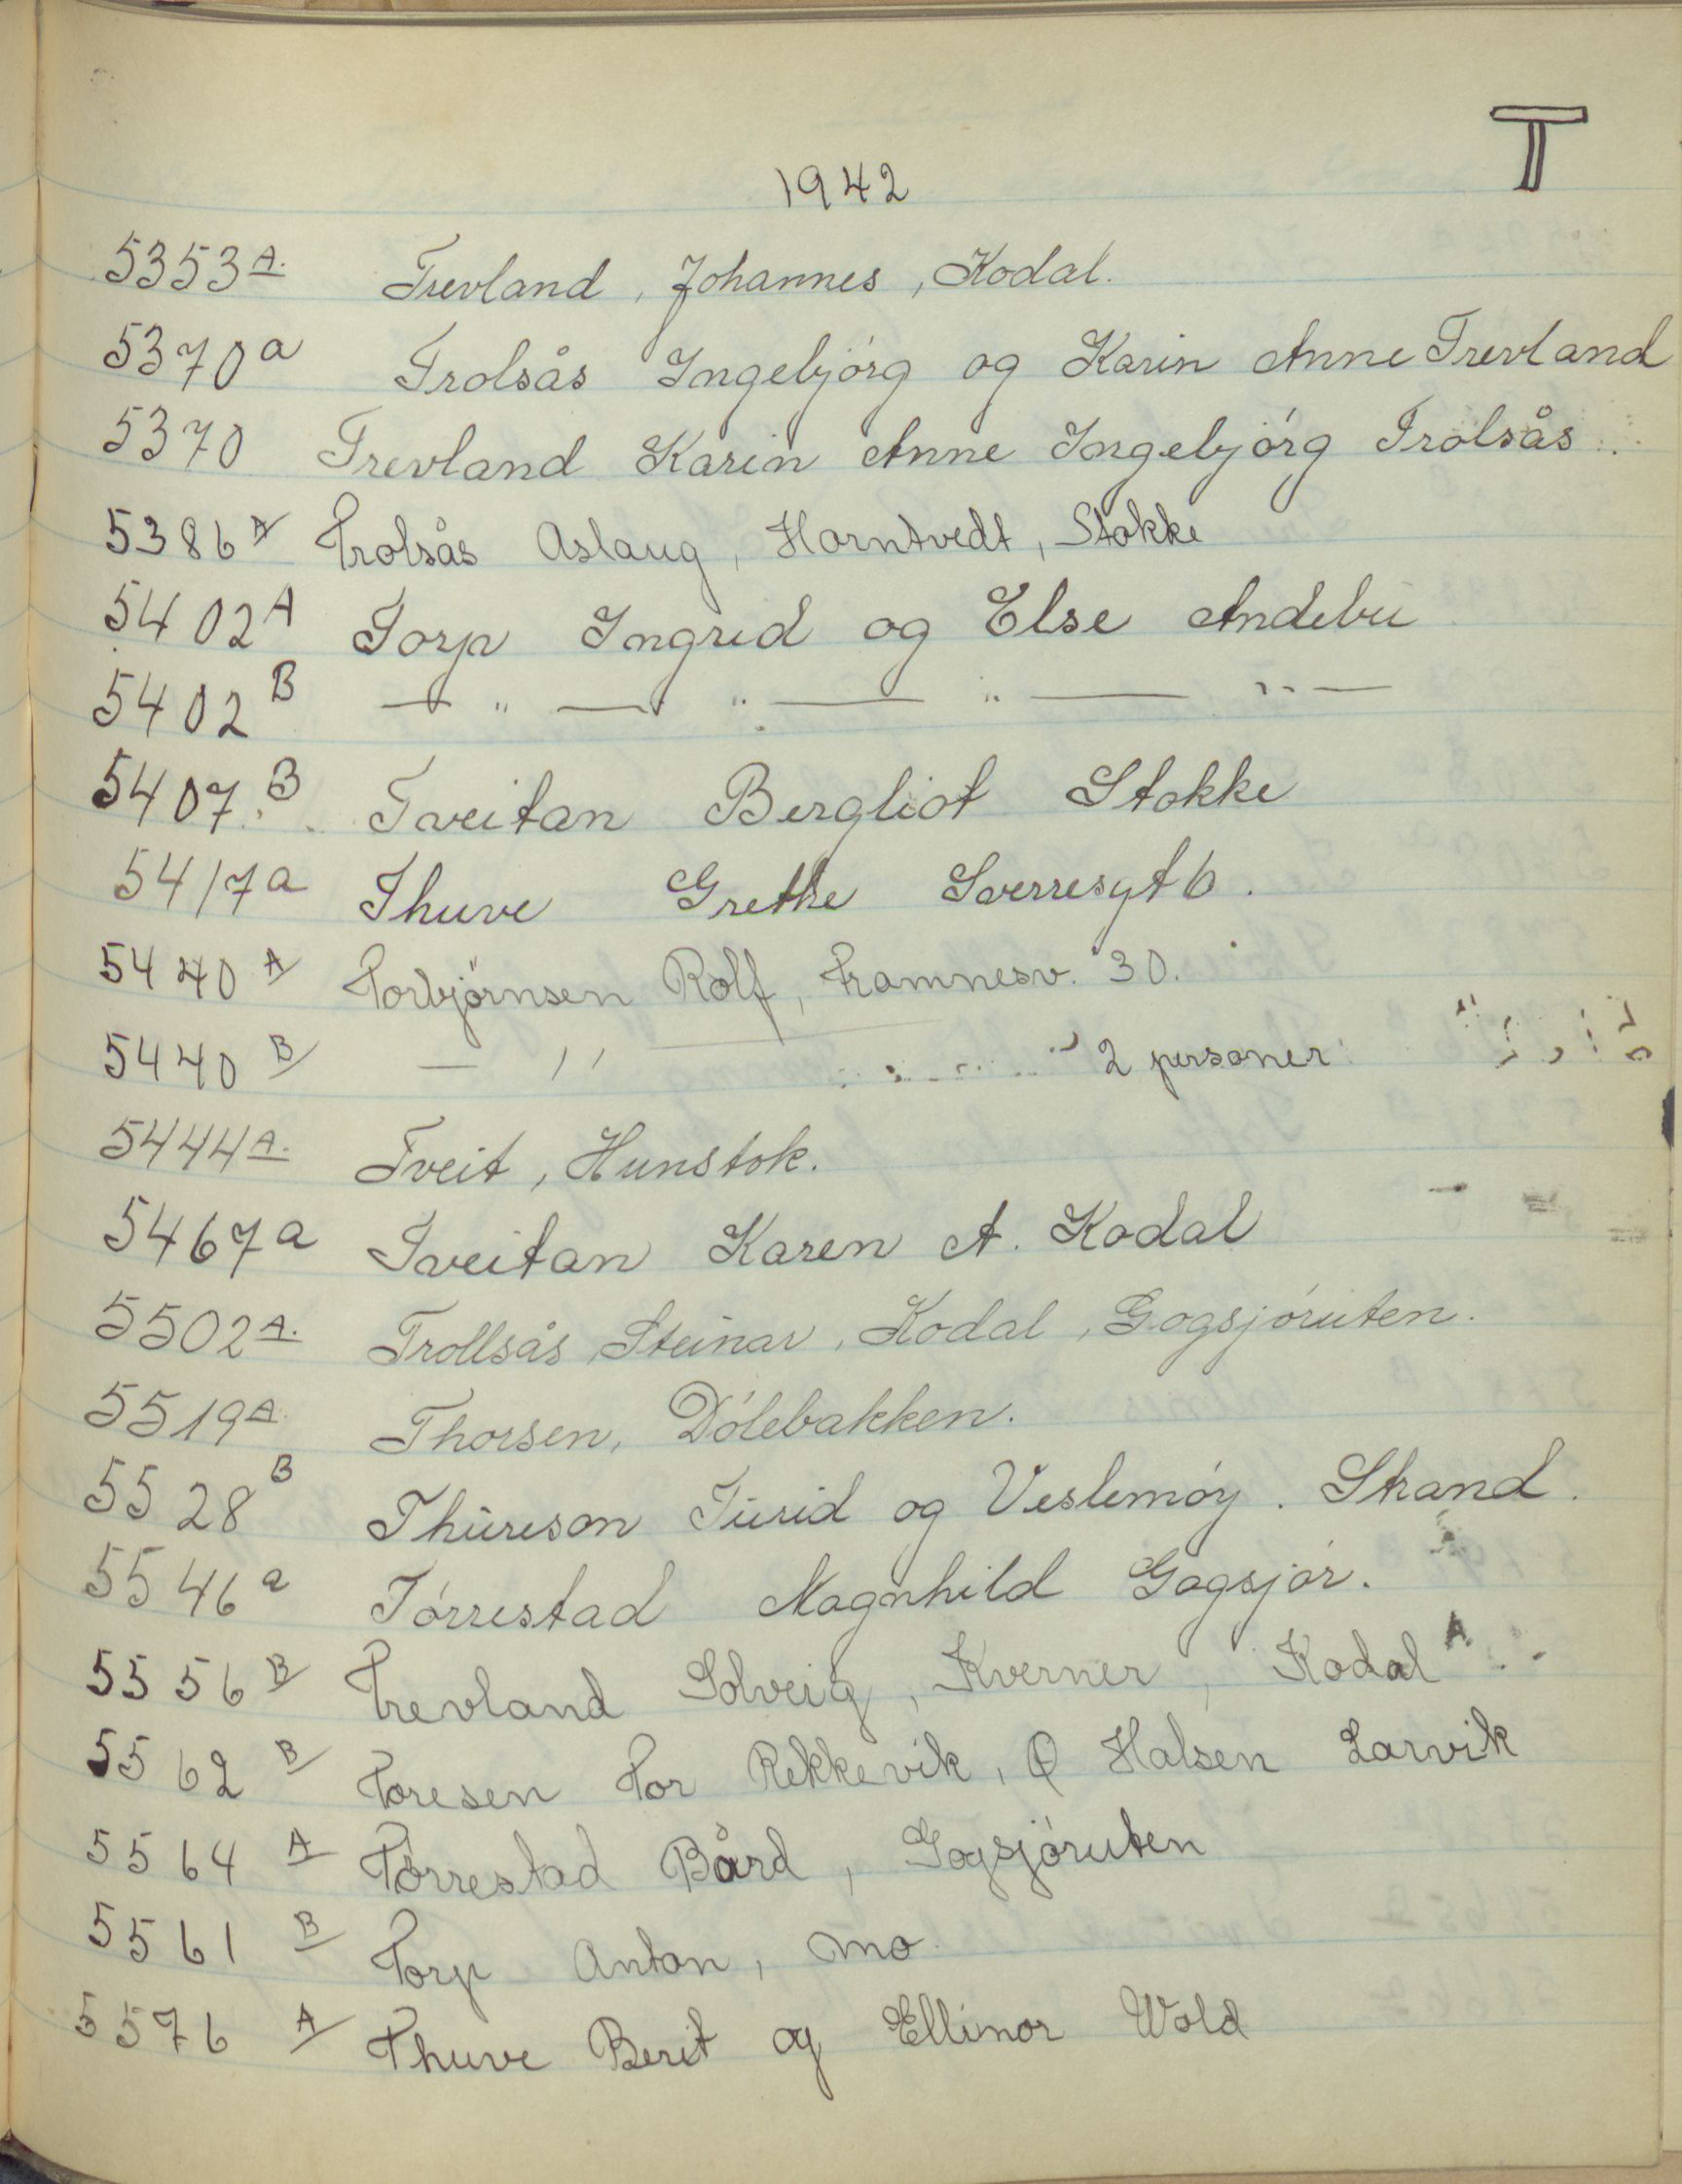 T
1942
5353 A. Trevland, Johannes, Kodal.
5370 a Trolsås Ingebjórg og Karin Anne Trevland
5370 Trevland Karin Anne Ingebjórg Trolsås.
5386 A Trolsås Aslaug, Horntvedt, Stokke
5402 A Torp Ingrid og Else Andebu
5402 B — " — " — " — " —
5407 B Tveitan Bergliot Stokke
5417 a Thuve Grethe Sverresgt 6.
5440 A Torbjörnsen Rolf, Framnesv. 30.
5440 B — " — " 2 personer
5444 A. Tveit, Hunstok.
5467 a Tveitan Karen A. Kodal
5502 A. Trollsås, Steinar, Kodal, Gogsjóruten.
5519 A. Thorsen, Dólebakken.
5528 B Thureson Turid og Veslemóy. Strand.
5546 a Tórrestad Magnhild Gogsjór.
5556 B Trevland Solveig, Kverner, Kodal A
5562 B Toresen Tor Rekkevik, Ø Halsen Larvik
5564 A Tórrestad Bård, Gogsjóruten
5561 B Torp Anton, Mo
5576 A Thuve Berit og Ellinor Wold